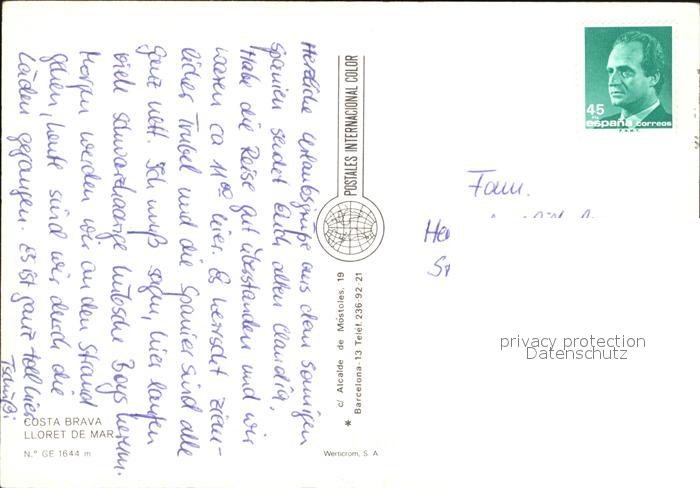 Herzliche Urlaubsgrüße aus dem sonnigen
Spanien sendet Euch allen Claudia.
Habe die Reise gut überstanden und wir
waren ca 11⁰⁰ hier. Es herrscht ziem-
licher Trubel und die Spanier sind alle
ganz nett. Ich muß sagen, hier laufen
viele schwarzhaarige hübsche Boys herum.
Morgen werden wir an den Strand
gehen, heute sind wir durch die
Läden gegangen. Es ist ganz toll hier
Tschüßi
COSTA BRAVA
LLORET DE MAR
N.º GE 1644 m
POSTALES INTERNACIONAL COLOR
c/ Alcalde de Móstoles, 19
* Barcelona-13 Teléf. 236-92-21
Werticrom, S. A.
45
PTA
españa correos
F.N.M.T.
Fam.
privacy protection
Datenschutz